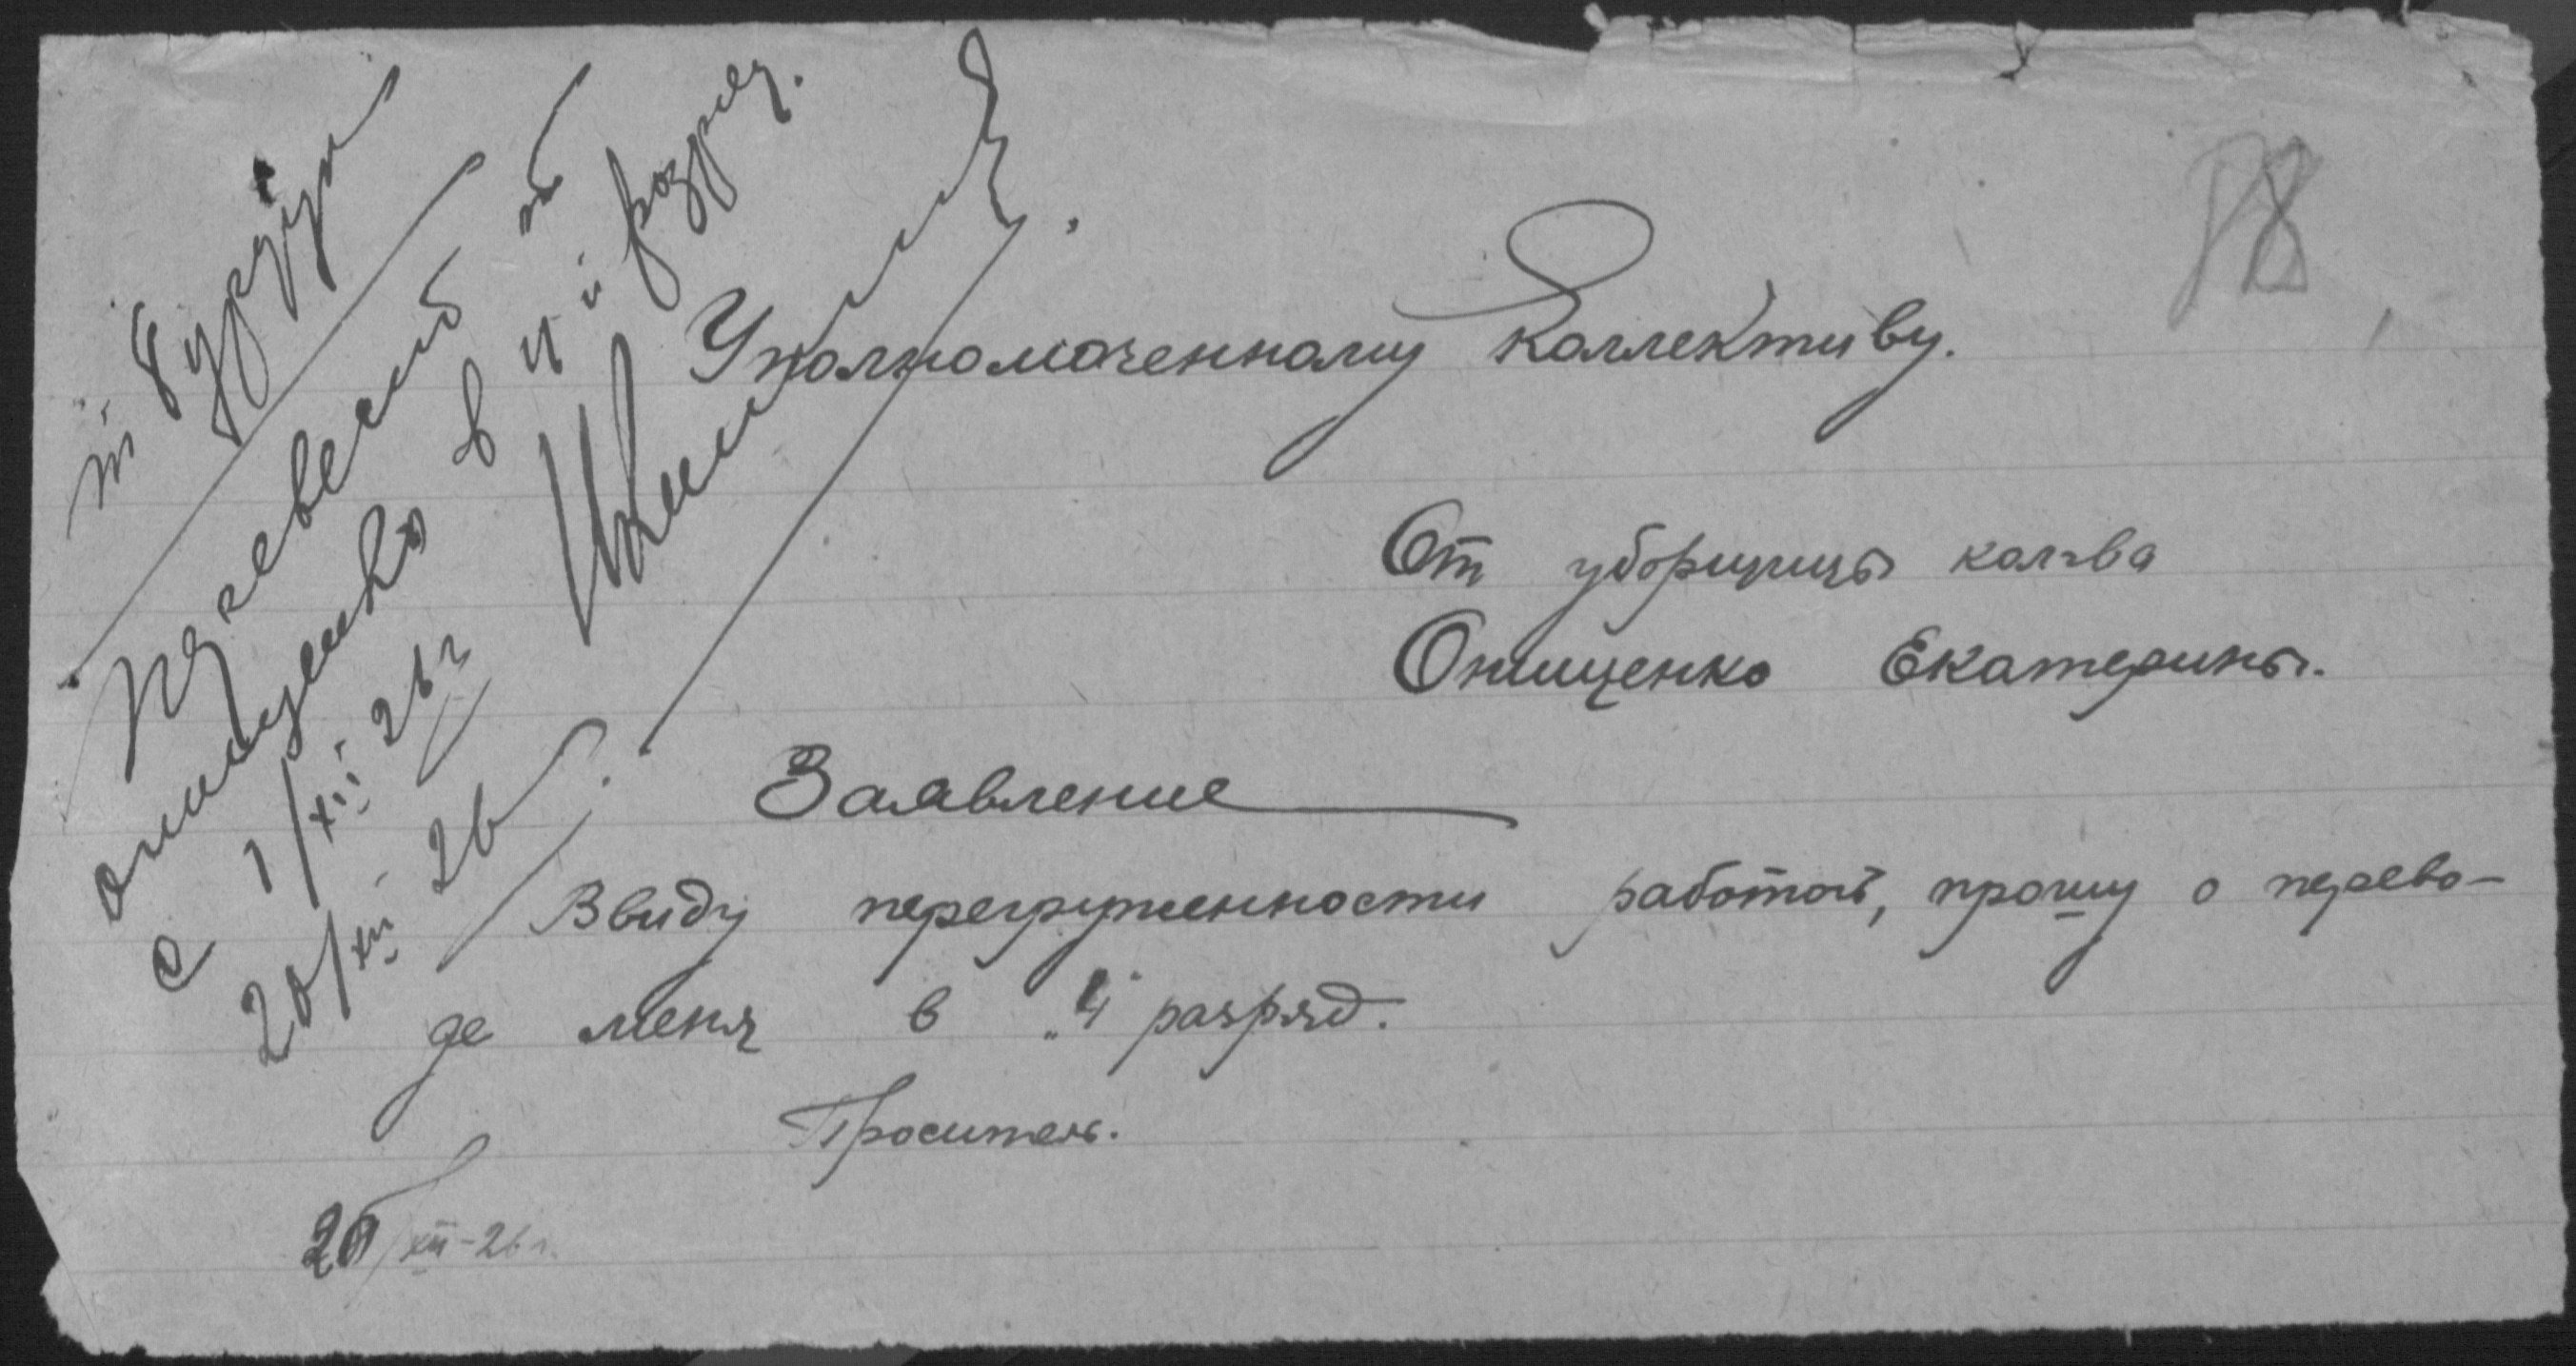 перевести тов
Онищенко в 4й разряд.
с 1/XII 26 г
20/XII 26
Уполномоченному Коллективу.
От уборщицы кол-ва
Онищенко Екатерины.
Заявление
Ввиду перегруженности работой, прошу о перево-
де меня в "4" разряд.
Проситель.
20/XII-26 г.